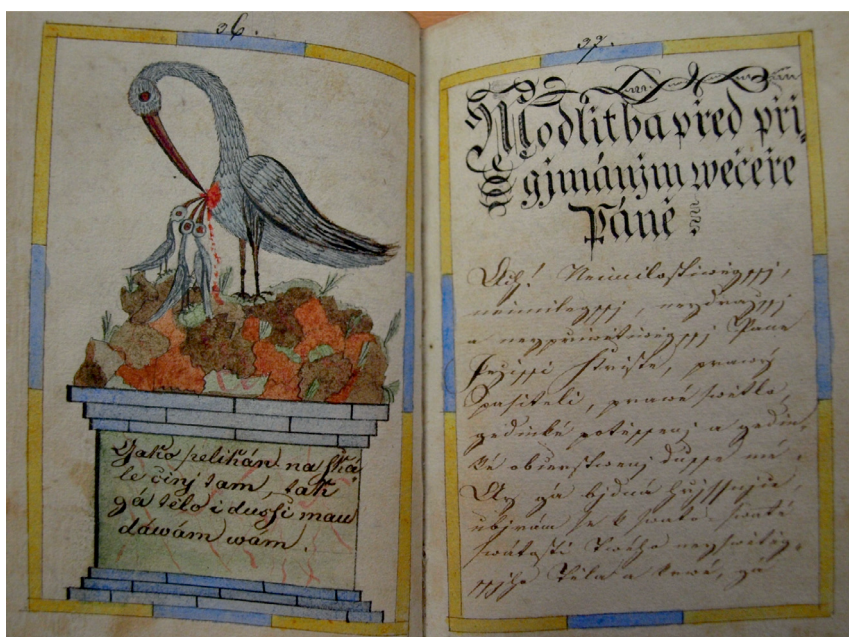 36.
Gako pelikán na ská
le činj tam, tak
gá tělo i dussi mau
dáwám wám.
37.
Modlitba před při,
gjmánjm wečeře
Páně
Ach! Neimilostiwěgssj,
neimilegssj, neydražssj
a neypřiwětiwěgssj Pane
Gežjssi Kriste, prawý
Spasiteli, prawé swětlo,
gedinké potěssenj a gedin,
ké obcerstwenj dusse mé.
Ay gá bjdná hřjssnice,
ubjrám se k swaté
swátosti Twého neyswětěg,
ssjho Těla a krwe, gá